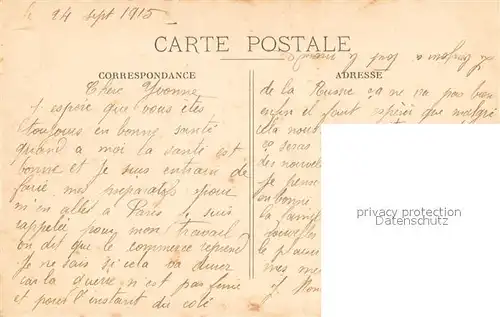 le 24 sept 1915
CARTE POSTALE
CORRESPONDANCE
Chère Yvonne
J espère que vous êtes
toujours en bonne santé
quand a moi la santé est
bonne et Je suis entrain de
faire mes preparatifs pour
m'en aller a Paris Je suis
rappelée pour mon travail
on dit que le commerce reprend
Je ne sais si cela va durer
car la guerre n'est pas finie
et pour l'instant du coté
ADRESSE
de la Russie ça ne va pas bien
enfin il faut espérer que malgré
cela nous
ça seras
des nouvelles
Je pense
en bonne
la famille
le
mes me
privacy protection
www.ansichtskarten-center.de